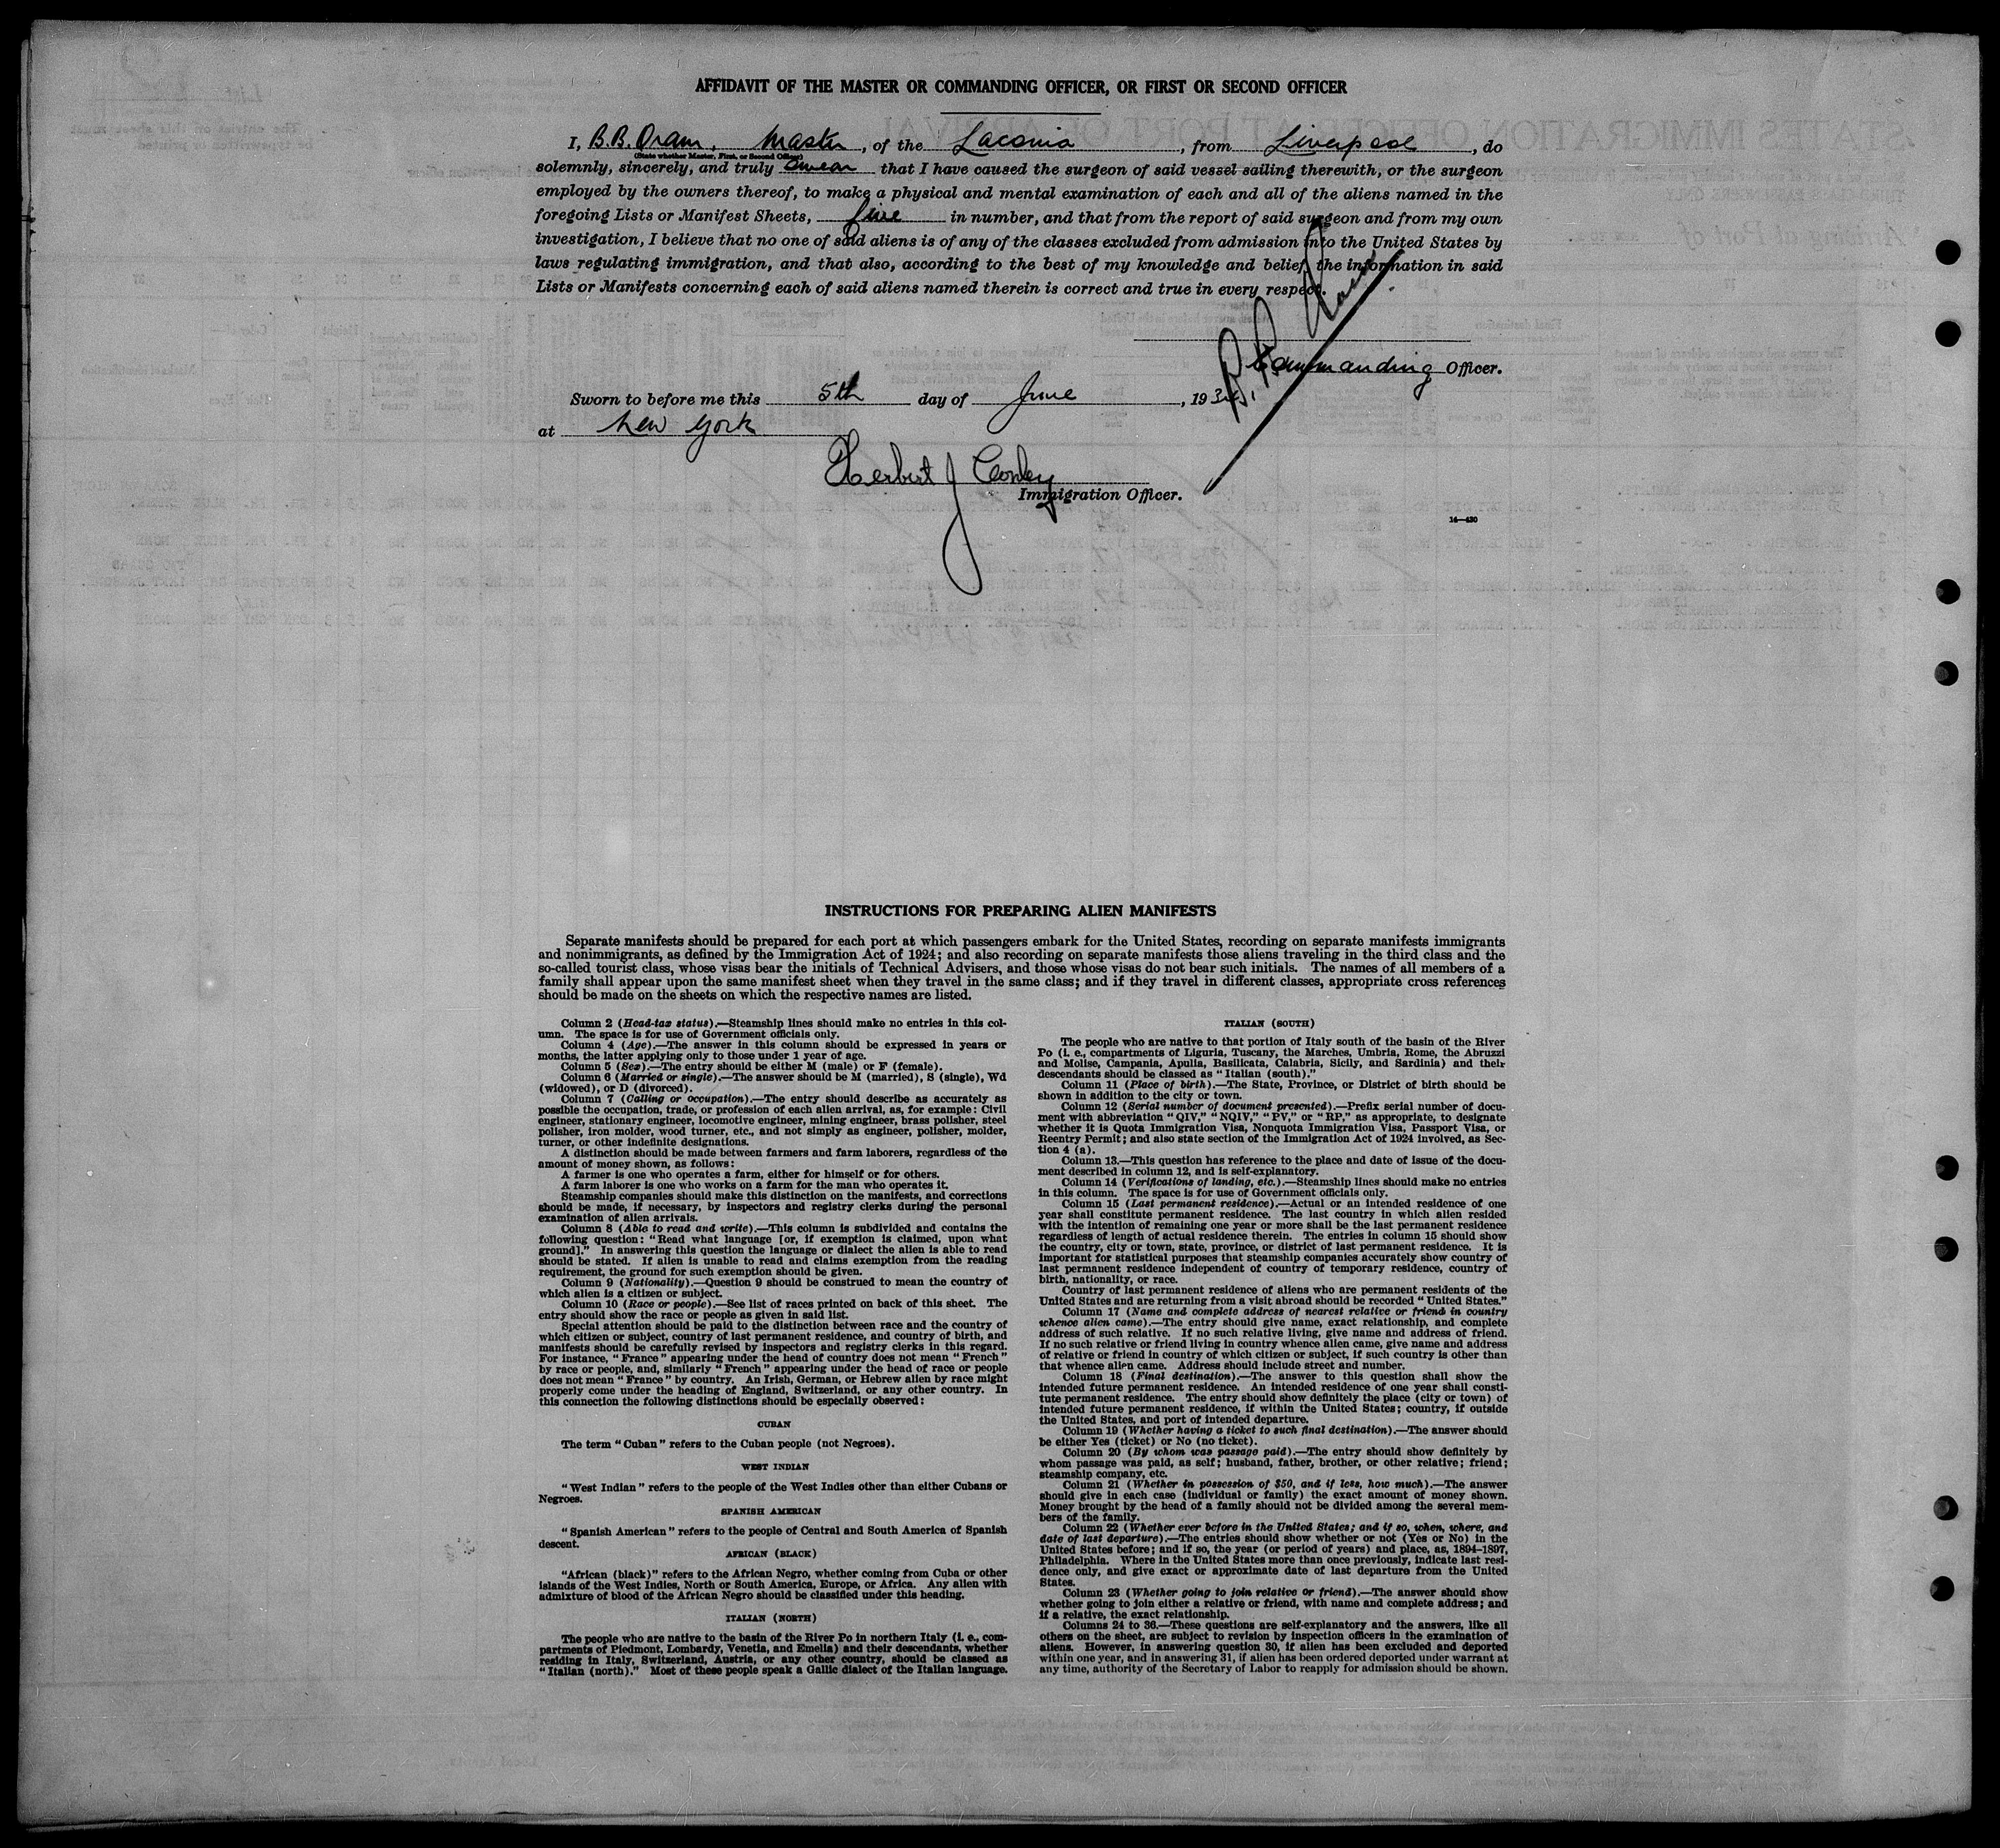 AFFIDAVIT OF THE MASTER OR COMMANDING OFFICER, OR FIRST OR SECOND OFFICER
I, B.B. Oram, Master, of the Laconia, from Liverpool, do
(State whether Master, First, or Second Officer)
solemnly, sincerely, and truly swear that I have caused the surgeon of said vessel sailing therewith, or the surgeon
employed by the owners thereof, to make a physical and mental examination of each and all of the aliens named in the
foregoing Lists or Manifest Sheets, five in number, and that from the report of said surgeon and from my own
investigation, I believe that no one of said aliens is of any of the classes excluded from admission into the United States by
laws regulating immigration, and that also, according to the best of my knowledge and belief, the information in said
Lists or Manifests concerning each of said aliens named therein is correct and true in every respect.
B. B. Oram
Commanding Officer.
Sworn to before me this 5th day of June, 193
at New York
Herbert J Conley
Immigration Officer.
14—430
INSTRUCTIONS FOR PREPARING ALIEN MANIFESTS
Separate manifests should be prepared for each port at which passengers embark for the United States, recording on separate manifests immigrants
and nonimmigrants, as defined by the Immigration Act of 1924; and also recording on separate manifests those aliens traveling in the third class and the
so-called tourist class, whose visas bear the initials of Technical Advisers, and those whose visas do not bear such initials. The names of all members of a
family shall appear upon the same manifest sheet when they travel in the same class; and if they travel in different classes, appropriate cross references
should be made on the sheets on which the respective names are listed.
Column 2 (Head-tax status).—Steamship lines should make no entries in this col-
umn. The space is for use of Government officials only.
Column 4 (Age).—The answer in this column should be expressed in years or
months, the latter applying only to those under 1 year of age.
Column 5 (Sex).—The entry should be either M (male) or F (female).
Column 6 (Married or single).—The answer should be M (married), S (single), Wd
(widowed), or D (divorced).
Column 7 (Calling or occupation).—The entry should describe as accurately as
possible the occupation, trade, or profession of each alien arrival, as, for example: Civil
engineer, stationary engineer, locomotive engineer, mining engineer, brass polisher, steel
polisher, iron molder, wood turner, etc., and not simply as engineer, polisher, molder,
turner, or other indefinite designations.
A distinction should be made between farmers and farm laborers, regardless of the
amount of money shown, as follows:
A farmer is one who operates a farm, either for himself or for others.
A farm laborer is one who works on a farm for the man who operates it.
Steamship companies should make this distinction on the manifests, and corrections
should be made, if necessary, by inspectors and registry clerks during the personal
examination of alien arrivals.
Column 8 (Able to read and write).—This column is subdivided and contains the
following question: "Read what language [or, if exemption is claimed, upon what
ground]." In answering this question the language or dialect the alien is able to read
should be stated. If alien is unable to read and claims exemption from the reading
requirement, the ground for such exemption should be given.
Column 9 (Nationality).—Question 9 should be construed to mean the country of
which alien is a citizen or subject.
Column 10 (Race or people).—See list of races printed on back of this sheet. The
entry should show the race or people as given in said list.
Special attention should be paid to the distinction between race and the country of
which citizen or subject, country of last permanent residence, and country of birth, and
manifests should be carefully revised by inspectors and registry clerks in this regard.
For instance, "France" appearing under the head of country does not mean "French"
by race or people, and, similarly "French" appearing under the head of race or people
does not mean "France" by country. An Irish, German, or Hebrew alien by race might
properly come under the heading of England, Switzerland, or any other country. In
this connection the following distinctions should be especially observed:
CUBAN
The term "Cuban" refers to the Cuban people (not Negroes).
WEST INDIAN
"West Indian" refers to the people of the West Indies other than either Cubans or
Negroes.
SPANISH AMERICAN
"Spanish American" refers to the people of Central and South America of Spanish
descent.
AFRICAN (BLACK)
"African (black)" refers to the African Negro, whether coming from Cuba or other
islands of the West Indies, North or South America, Europe, or Africa. Any alien with
admixture of blood of the African Negro should be classified under this heading.
ITALIAN (NORTH)
The people who are native to the basin of the River Po in northern Italy (i. e., com-
partments of Piedmont, Lombardy, Venetia, and Emelia) and their descendants, whether
residing in Italy, Switzerland, Austria, or any other country, should be classed as
"Italian (north)." Most of these people speak a Gallic dialect of the Italian language.
ITALIAN (SOUTH)
The people who are native to that portion of Italy south of the basin of the River
Po (i. e., compartments of Liguria, Tuscany, the Marches, Umbria, Rome, the Abruzzi
and Molise, Campania, Apulia, Basilicata, Calabria, Sicily, and Sardinia) and their
descendants should be classed as "Italian (south)."
Column 11 (Place of birth).—The State, Province, or District of birth should be
shown in addition to the city or town.
Column 12 (Serial number of document presented).—Prefix serial number of docu-
ment with abbreviation "QIV," "NQIV," "PV," or "RP," as appropriate, to designate
whether it is Quota Immigration Visa, Nonquota Immigration Visa, Passport Visa, or
Reentry Permit; and also state section of the Immigration Act of 1924 involved, as Sec-
tion 4 (a).
Column 13.—This question has reference to the place and date of issue of the docu-
ment described in column 12, and is self-explanatory.
Column 14 (Verifications of landing, etc.).—Steamship lines should make no entries
in this column. The space is for use of Government officials only.
Column 15 (Last permanent residence).—Actual or an intended residence of one
year shall constitute permanent residence. The last country in which alien resided
with the intention of remaining one year or more shall be the last permanent residence
regardless of length of actual residence therein. The entries in column 15 should show
the country, city or town, state, province, or district of last permanent residence. It is
important for statistical purposes that steamship companies accurately show country of
last permanent residence independent of country of temporary residence, country of
birth, nationality, or race.
Country of last permanent residence of aliens who are permanent residents of the
United States and are returning from a visit abroad should be recorded "United States."
Column 17 (Name and complete address of nearest relative or friend in country
whence alien came).—The entry should give name, exact relationship, and complete
address of such relative. If no such relative living, give name and address of friend.
If no such relative or friend living in country whence alien came, give name and address
of relative or friend in country of which citizen or subject, if such country is other than
that whence alien came. Address should include street and number.
Column 18 (Final destination).—The answer to this question shall show the
intended future permanent residence. An intended residence of one year shall consti-
tute permanent residence. The entry should show definitely the place (city or town) of
intended future permanent residence, if within the United States; country, if outside
the United States, and port of intended departure.
Column 19 (Whether having a ticket to such final destination).—The answer should
be either Yes (ticket) or No (no ticket).
Column 20 (By whom was passage paid).—The entry should show definitely by
whom passage was paid, as self; husband, father, brother, or other relative; friend;
steamship company, etc.
Column 21 (Whether in possession of $50, and if less, how much).—The answer
should give in each case (individual or family) the exact amount of money shown.
Money brought by the head of a family should not be divided among the several mem-
bers of the family.
Column 22 (Whether ever before in the United States; and if so, when, where, and
date of last departure).—The entries should show whether or not (Yes or No) in the
United States before; and if so, the year (or period of years) and place, as, 1894-1897,
Philadelphia. Where in the United States more than once previously, indicate last resi-
dence only, and give exact or approximate date of last departure from the United
States.
Column 23 (Whether going to join relative or friend).—The answer should show
whether going to join either a relative or friend, with name and complete address; and
if a relative, the exact relationship.
Columns 24 to 36.—These questions are self-explanatory and the answers, like all
others on the sheet, are subject to revision by inspection officers in the examination of
aliens. However, in answering question 30, if alien has been excluded and deported
within one year, and in answering 31, if alien has been ordered deported under warrant at
any time, authority of the Secretary of Labor to reapply for admission should be shown.